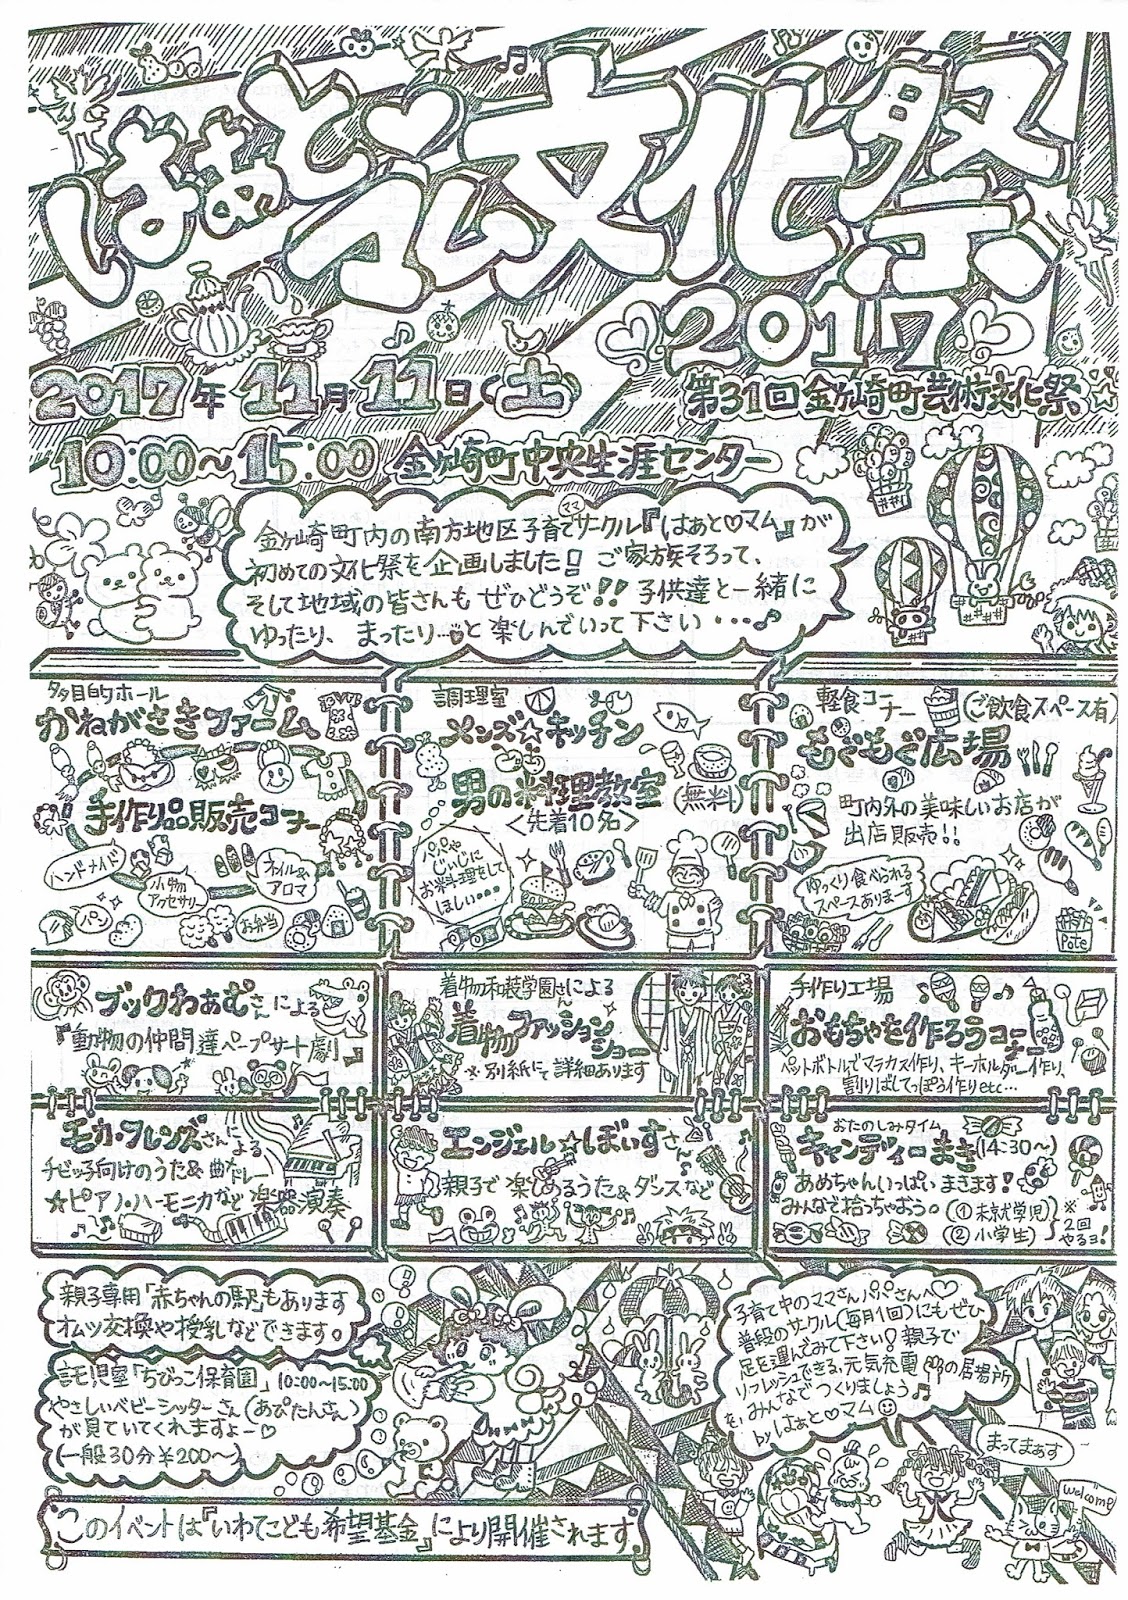 はぁと♡ム文化祭
2017
2017年11月11日(土)
第31回金ケ崎町芸術文化祭
10:00〜15:00 金ケ崎町中央生涯センター
金ケ崎町内の南方地区子育てサークル『はぁと♡マム』が
ママ
初めての文化祭を企画しました! ご家族そろって、
そして地域の皆さんも ぜひどうぞ!! 子供達と一緒に
ゆったり、まったり…♡と楽しんでいって下さい・・・♪
多目的ホール
かねがさきファーム
手作り品販売コーナー
ハンドメイド
小物
アクセサリー
ネイル&
アロマ
パン
お弁当
調理室
メンズ☆キッチン
男の料理教室(無料)
<先着10名>
パパや
じぃじに
お料理をして
ほしい・・・
軽食コーナー (ご飲食スペース有)
もぐもぐ広場
町内外の美味しいお店が
出店販売!!
ゆっくり食べられる
スペースありまーす
Pote
ブックわぁむさんによる
『動物の仲間達ペープサート劇』
着物和装学園さんによる
着物ファッション
ショー
※別紙にて詳細あります
手作り工場
おもちゃを作ろうコーナー
ペットボトルでマラカス作り、キーホルダー作り、
割りばしてっぽう作りetc…
モカ・フレンズさんによる
チビッ子向けのうた&曲・トレー
☆ピアノ・ハーモニカなど楽器演奏
エンジェル☆ぼぃずさん
親子で楽しめるうた&ダンスなど
おたのしみタイム
キャンディーまき(14:30〜)
あめちゃんいっぱいまきます!
みんなで拾っちゃおう。(①未就学児) ※
(②小学生) 2回
やるヨ!
親子専用「赤ちゃんの駅」もあります
オムツ交換や授乳などできます。
託児室「ちびっこ保育園」10:00〜15:00
やさしいベビーシッターさん(あぴたんさん
が見ていてくれますよー♡
(一般30分¥200〜)
このイベントは『いわてこども希望基金』により開催されます
子育て中のママさんパパさんへ♡
普段のサークル(毎月1回)にもぜひ
足を運んでみて下さい! 親子で
リフレッシュできる、元気充電中の居場所
を、みんなでつくりましょう♪
by はぁと♡マム
まってまぁす
welcome